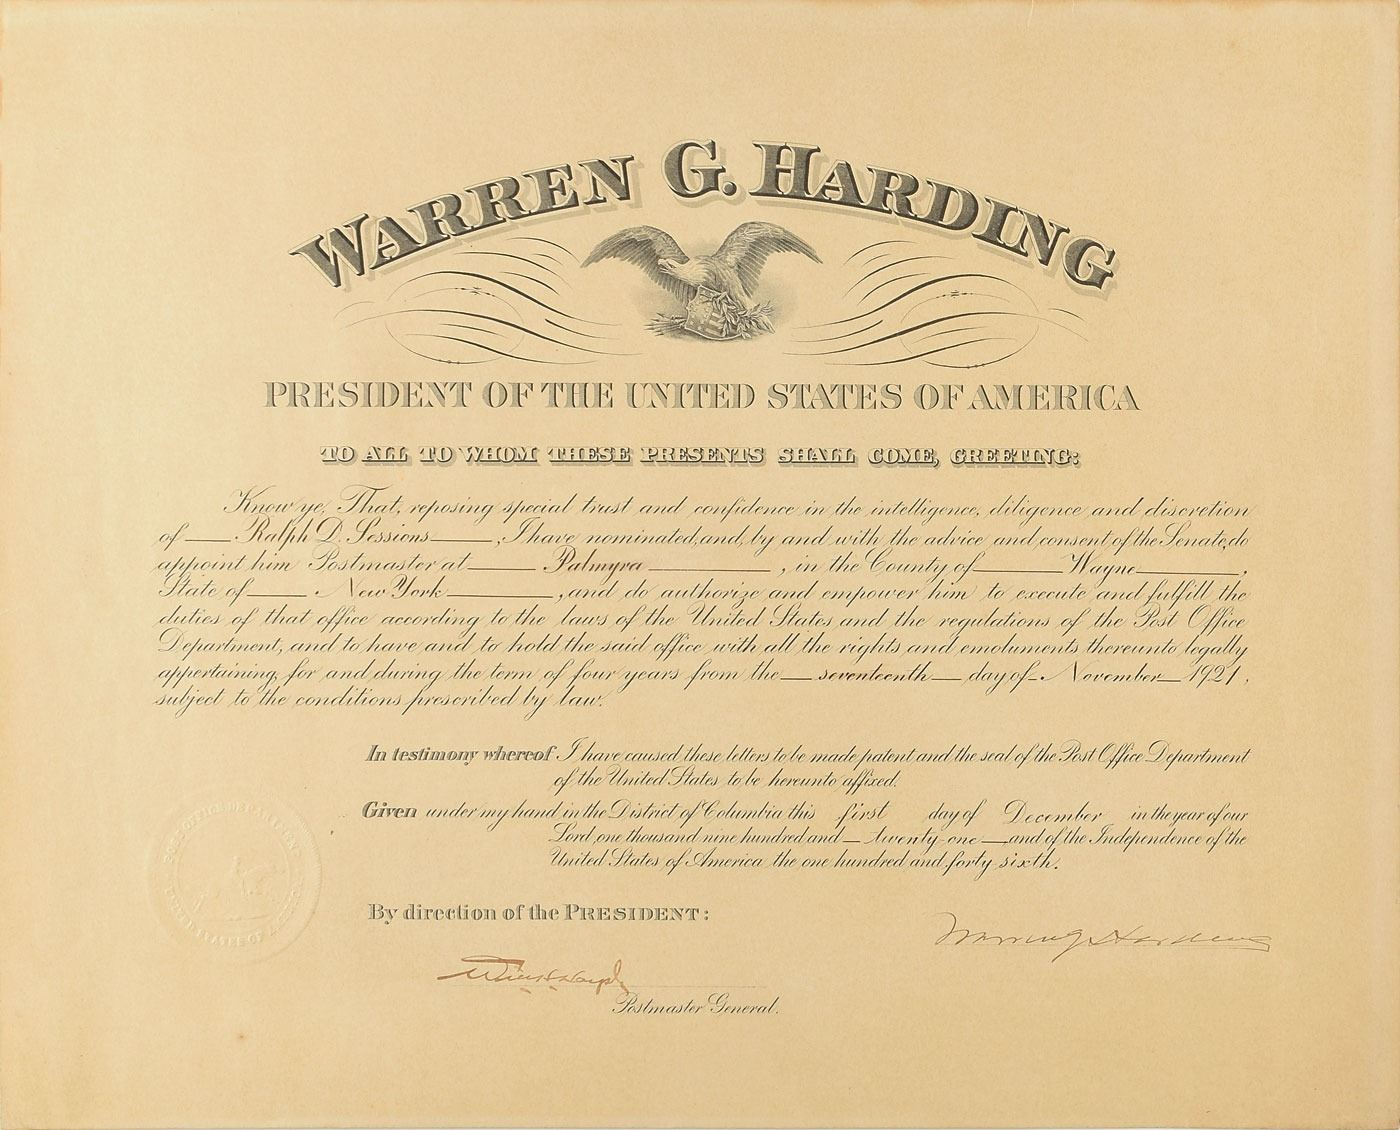 WARREN G. HARDING
PRESIDENT OF THE UNITED STATES OF AMERICA
TO ALL TO WHOM THESE PRESENTS SHALL COME, GREETING:
Know ye, That, reposing special trust and confidence in the intelligence, diligence and discretion
of Ralph D. Sessions, I have nominated, and, by and with the advice and consent of the Senate, do
appoint him Postmaster at Palmyra, in the County of Wayne,
State of New York, and do authorize and empower him to execute and fulfill the
duties of that office according to the laws of the United States and the regulations of the Post Office
Department, and to have and to hold the said office with all the rights and emoluments thereunto legally
appertaining, for and during the term of four years from the seventeenth day of November 1921,
subject to the conditions prescribed by law.
In testimony whereof I have caused these letters to be made patent and the seal of the Post Office Department
of the United States to be hereunto affixed.
Given under my hand in the District of Columbia this first day of December in the year of our
Lord one thousand nine hundred and twenty-one and of the Independence of the
United States of America the one hundred and forty sixth.
POST OFFICE DEPARTMENT
UNITED STATES OF AMERICA
By direction of the PRESIDENT:
Warren G Harding
Will H Hays
Postmaster General.